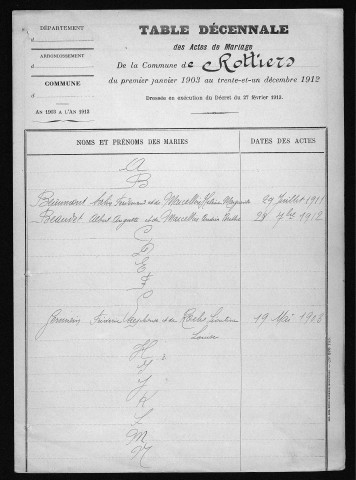 DÉPARTEMENT
d
ARRONDISSEMENT
d
COMMUNE
d
AN 1903 A L'AN 1912
TABLE DÉCENNALE
des Actes de Mariage
De la Commune de Rottiers
du premier janvier 1903 au trente-et-un décembre 1912
Dressée en exécution du Décret du 27 février 1913.
NOMS ET PRÉNOMS DES MARIÉS
DATES DES ACTES
A
B
Beaumont et de Marcellin 29 Juillet 1911
Beaudet Albert Auguste et de Marcellin 28 7bre 1912
C
D
E
F
G
Germain et de 19 Mai 1906
H
I
J
K
L
M
N